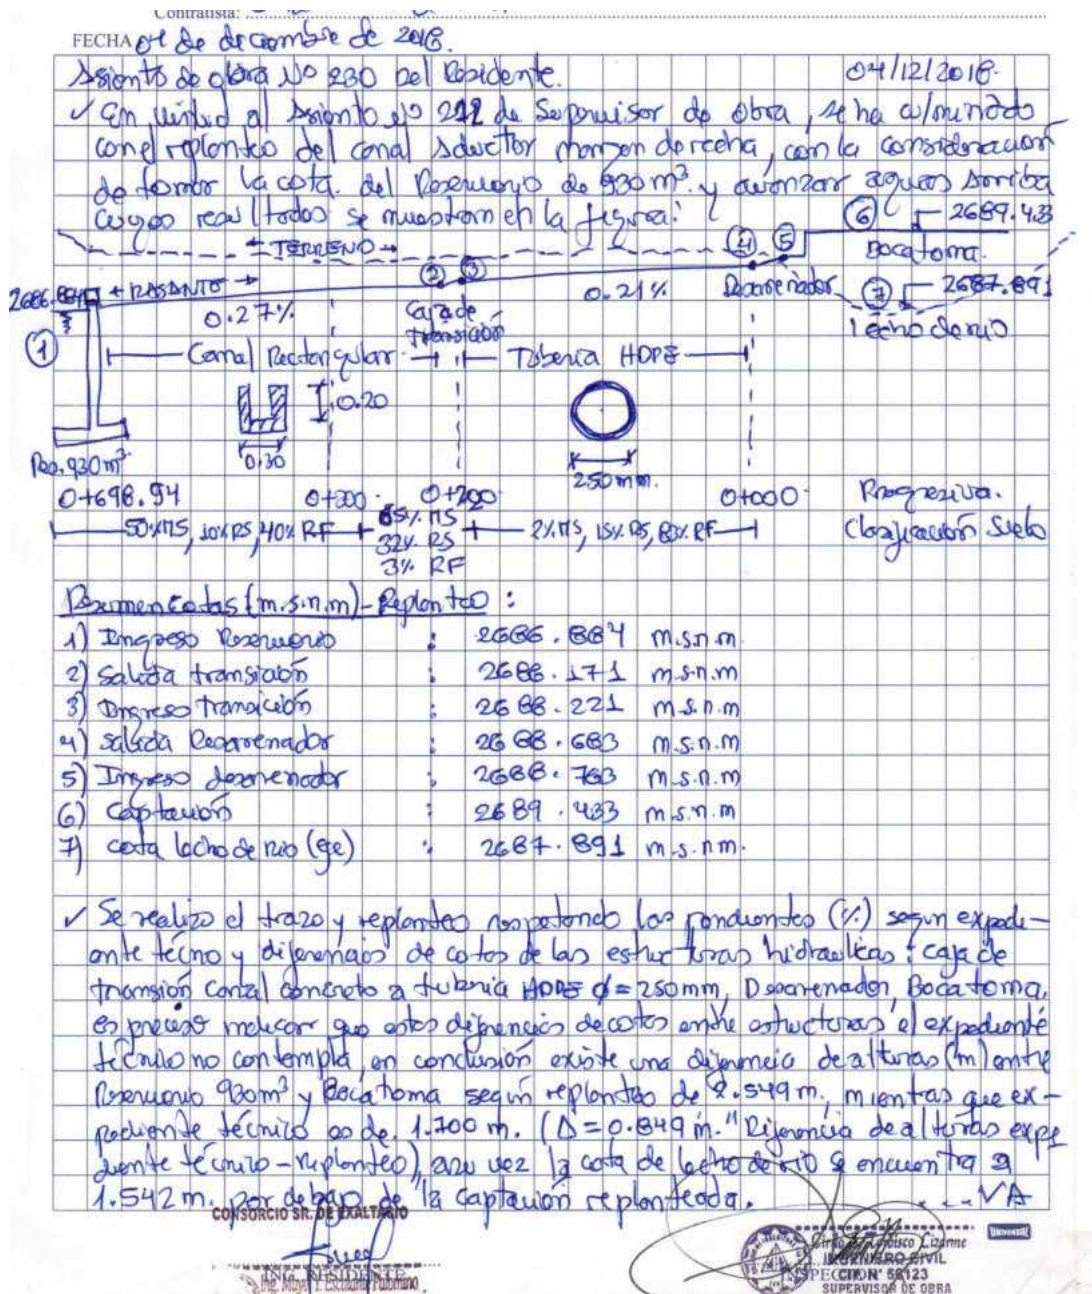 Contratista:
FECHA 04 de diciembre de 2018.
Asiento de obra No 230 Del Residente. 04/12/2018.
✓ En virtud al Asiento No 222 de Supervisor de obra, se ha culminado
con el replanteo del canal Aductor margen derecha, con la consideracion
de tomar la cota. del Reservorio de 930 m³. y avanzar aguas Arriba
cuyos resultados se muestran en la figura:
6 2689.433
← TERRENO → 4 5 Bocatoma.
2686.884 ← RASANTE → 2 3 0.21% Desarenador 7 2687.891
0.27% Caja de transición Lecho de rio
1 Canal Rectangular Tuberia HDPE
0.20
0.30 250 mm.
Res. 930 m³
0+698.94 0+200 0+200 0+000 Progresiva.
50% MS, 10% RS, 40% RF 65% MS 2% MS, 15% RS, 83% RF Clasificación Suelo
32% RS
3% RF
Resumen Cotas (m.s.n.m) - Replanteo :
1) Ingreso Reservorio : 2686.884 m.s.n.m
2) Salida transición : 2688.171 m.s.n.m
3) Ingreso transición : 2688.221 m.s.n.m
4) Salida Desarenador : 2688.683 m.s.n.m
5) Ingreso desarenador : 2688.763 m.s.n.m
6) Captación : 2689.433 m.s.n.m
7) cota lecho de rio (eje) : 2687.891 m.s.n.m.
✓ Se realizo el trazo y replanteo respetando las pendientes (%) segun expedi-
ente técno y diferencias de cotas de las estructuras hidraulicas : caja de
transión canal concreto a tuberia HDPE ϕ = 250mm, Desarenador, Bocatoma,
es preciso indicar que estas diferencias de cotas entre estructuras el expediente
técnico no contempla, en conclusión existe una diferencia de alturas (m) entre
Reservorio 930m³ y Bocatoma según replanteo de 2.549 m., mientras que ex-
pediente técnico es de. 1.700 m. (Δ = 0.849 m. "Diferencia de alturas expe
diente técnico - replanteo), a su vez la cota de lecho de rio se encuentra a
1.542 m. por debajo de la captación replanteada. ... VA
CONSORCIO SR. DE EXALTACIO
ING. RESIDENTE
UNIVERSAL
INGENIERO CIVIL
INSPECCION
CIP N° 58123
SUPERVISOR DE OBRA